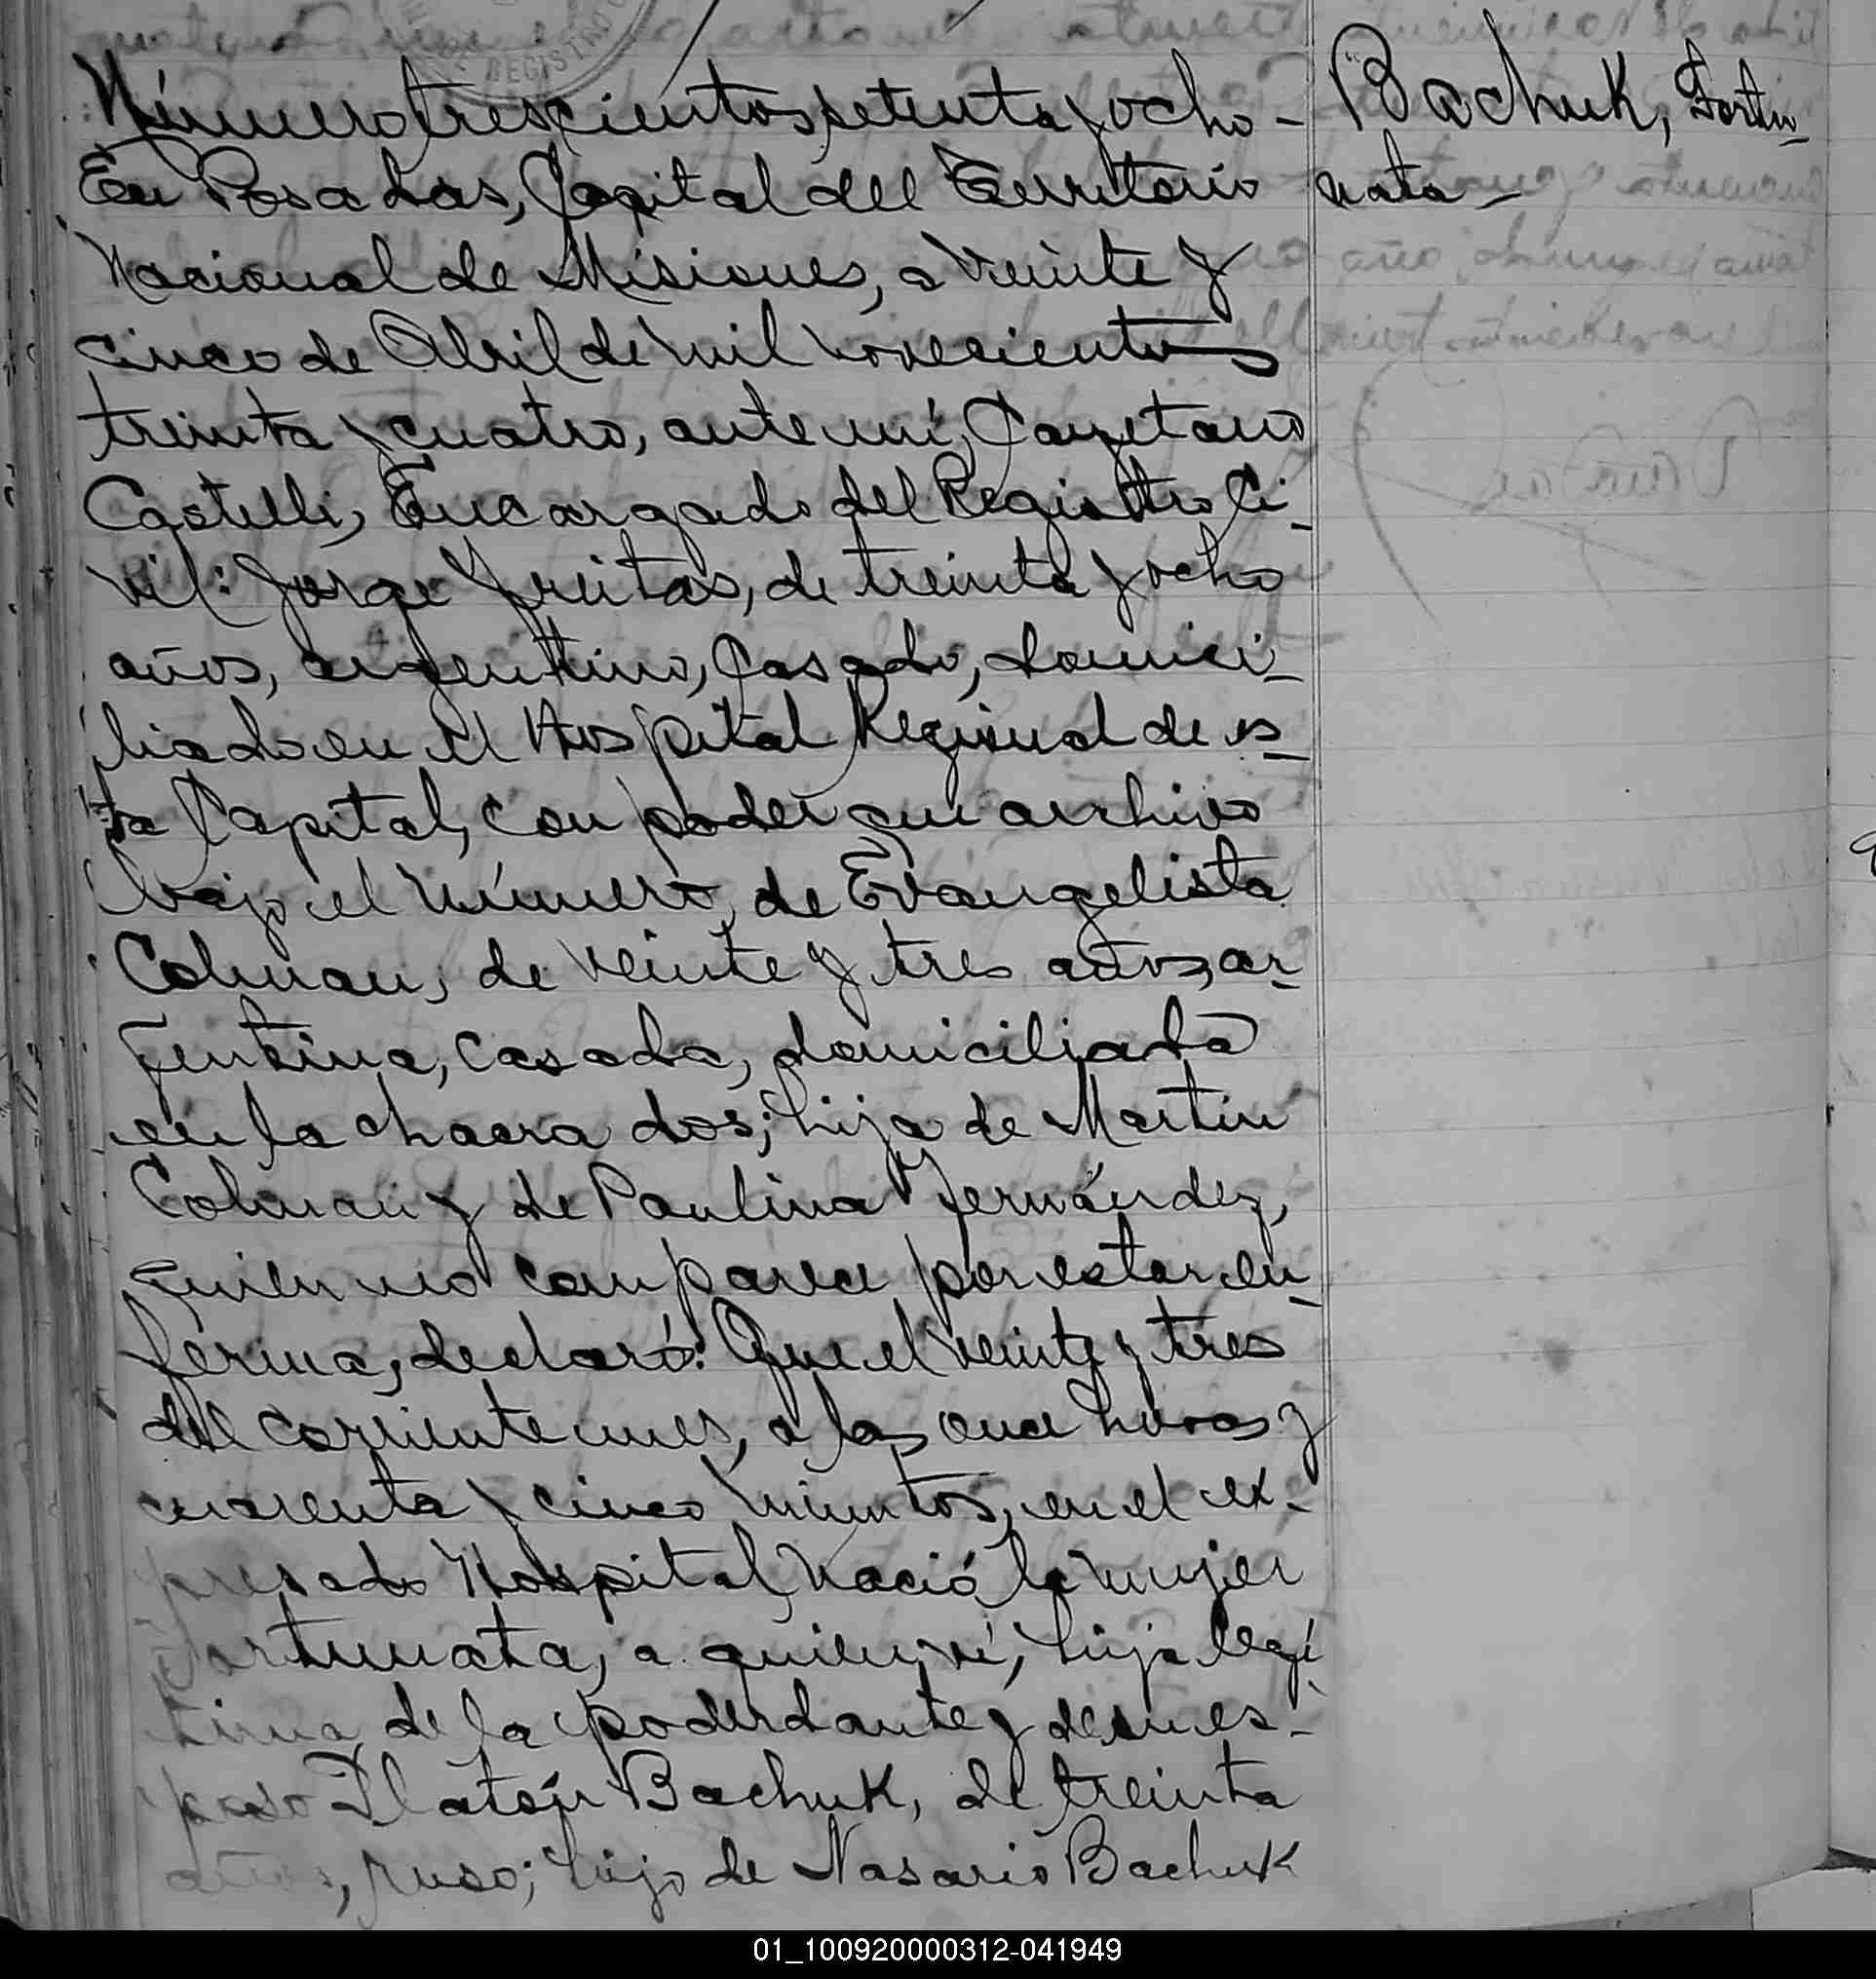 Número trescientos setenta y ocho -
En Posadas, Capital del Territorio
Nacional de Misiones, a veinte y
cinco de Abril de mil novecientos
treinta y cuatro, ante mí, Cayetano
Castelli, Encargado del Registro Ci-
vil: Jorge Freitas, de treinta y ocho
años, argentino, casado, domici-
liado en el Hospital Regional de es-
ta Capital, con poder que archivo
bajo el número, de Evangelista
Colman, de veinte y tres años, ar-
gentina, casada, domiciliada
en la chacra dos; hija de Martin
Colman y de Paulina Fernández,
quien no comparece por estar en-
ferma, declaró: Que el veinte y tres
del corriente mes, a las once horas y
cuarenta y cinco minutos, en el ex-
presado Hospital, nació la mujer
Fortunata, a quien ví, hija legí-
tima de la poderdante y de su es-
poso Platón Bachuk, de treinta
años, ruso; hijo de Nasario Bachuk
Bachuk, Fortu-
nata -
REGISTRO
01_100920000312-041949